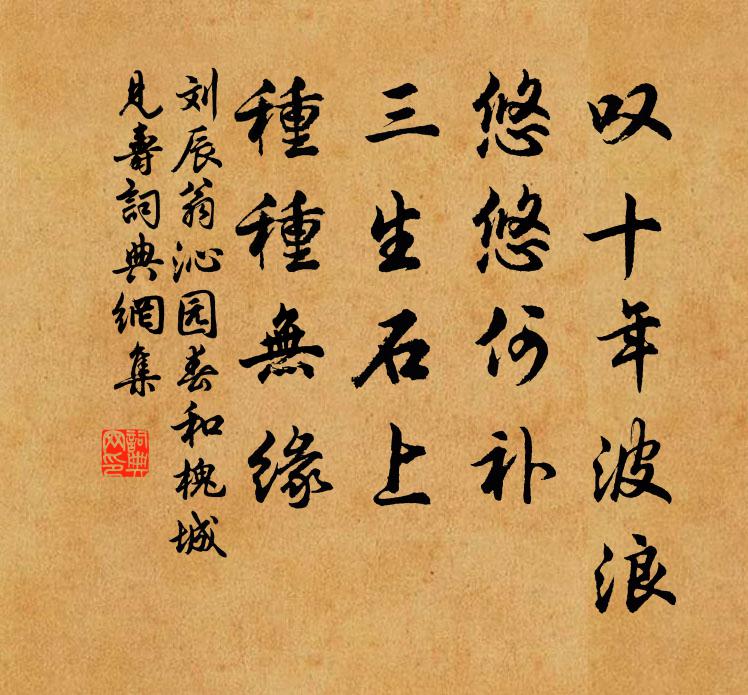 叹十年波浪
悠悠何补
三生石上
種種無緣
刘辰翁沁园春和槐城
見壽詞典網集
詞典網印